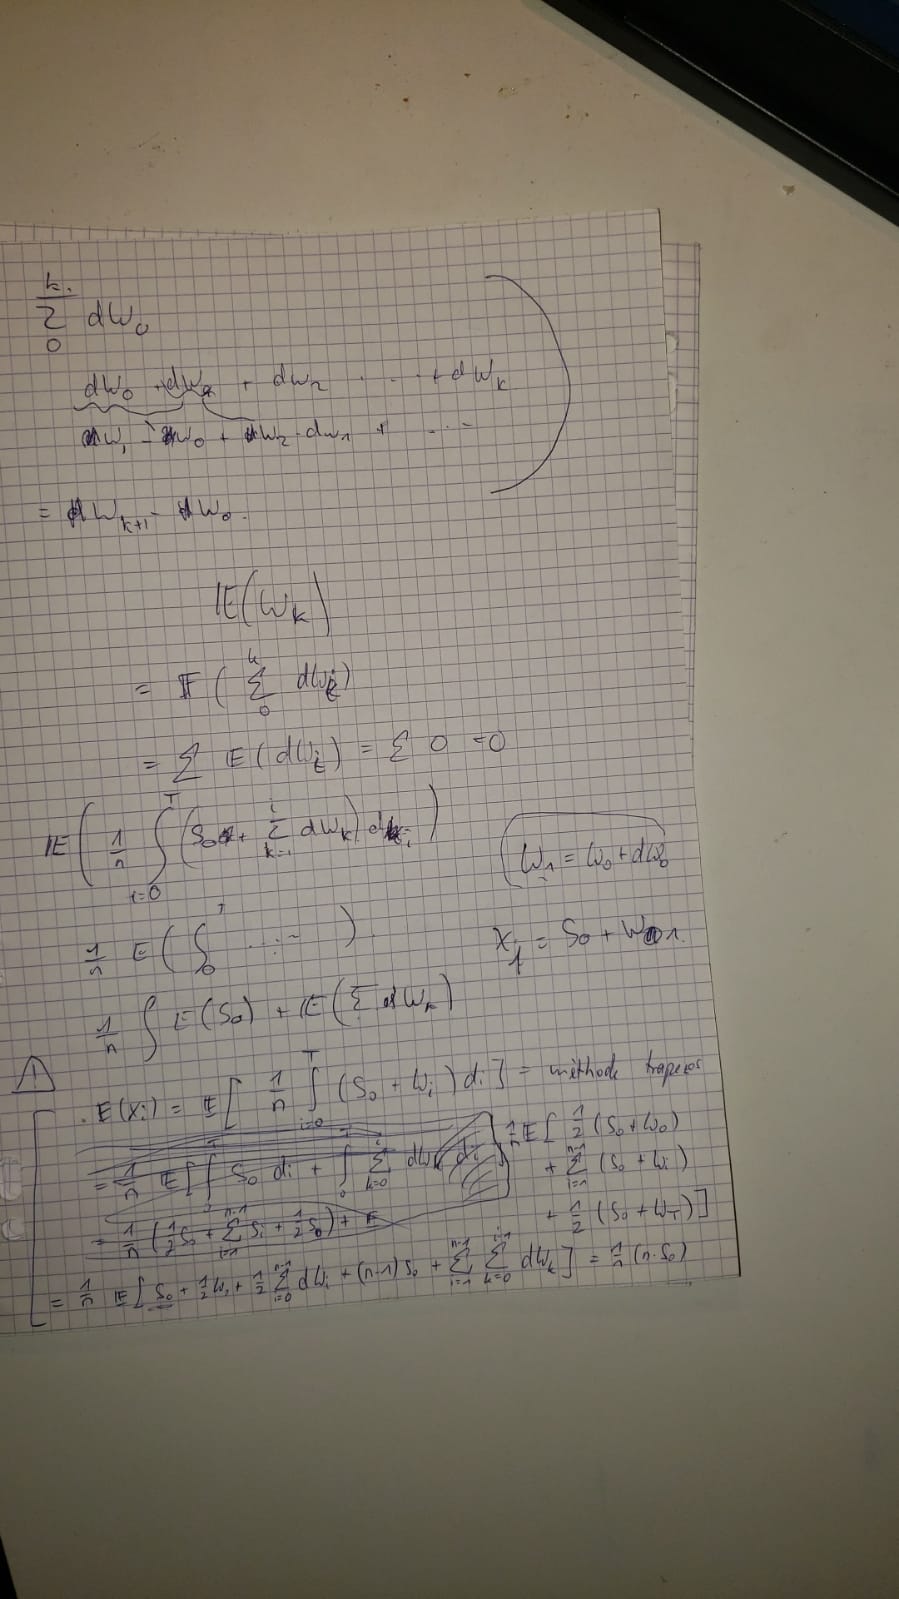 k
∑ dW₀
0
dW₀ + dW₁ + dW₂ ... + dWₖ
W₁ - W₀ + W₂ - dW₁ + ...
= Wₖ₊₁ - W₀.
𝔼(Wₖ)
= 𝔼(∑₀ᵏ dWᵢ)
= ∑ 𝔼(dWᵢ) = ∑ 0 = 0
𝔼(1/n ∫ᵢ₌₀ᵀ (S₀ + ∑ₖ₌₁ⁱ dWₖ) dᵢ)
W₁ = W₀ + dW₀
1/n 𝔼(∫₀ᵀ ... )
X₁ = S₀ + W₁.
1/n ∫ 𝔼(S₀) + 𝔼(∑ dWₖ)
. 𝔼(Xᵢ) = 𝔼[1/n ∫ᵢ₌₀ᵀ (S₀ + Wᵢ) di] = méthode trapèzes
1/n 𝔼[1/2 (S₀ + W₀)
+ ∑ᵢ₌₁ⁿ⁻¹ (S₀ + Wᵢ)
+ 1/2 (S₀ + W_T)]
= 1/n 𝔼[∫ S₀ di + ∫₀ᵀ ∑ₖ₌₀ⁱ dWₖ di
= 1/n (1/2 S₀ + ∑ᵢ₌₁ⁿ⁻¹ Sᵢ + 1/2 S₀) + 𝔼
= 1/n 𝔼[S₀ + 1/2 W₁ + 1/2 ∑ᵢ₌₀ⁿ⁻¹ dWᵢ + (n-1) S₀ + ∑ᵢ₌₁ⁿ⁻¹ ∑ₖ₌₀ⁱ⁻¹ dWₖ] = 1/n (n·S₀)